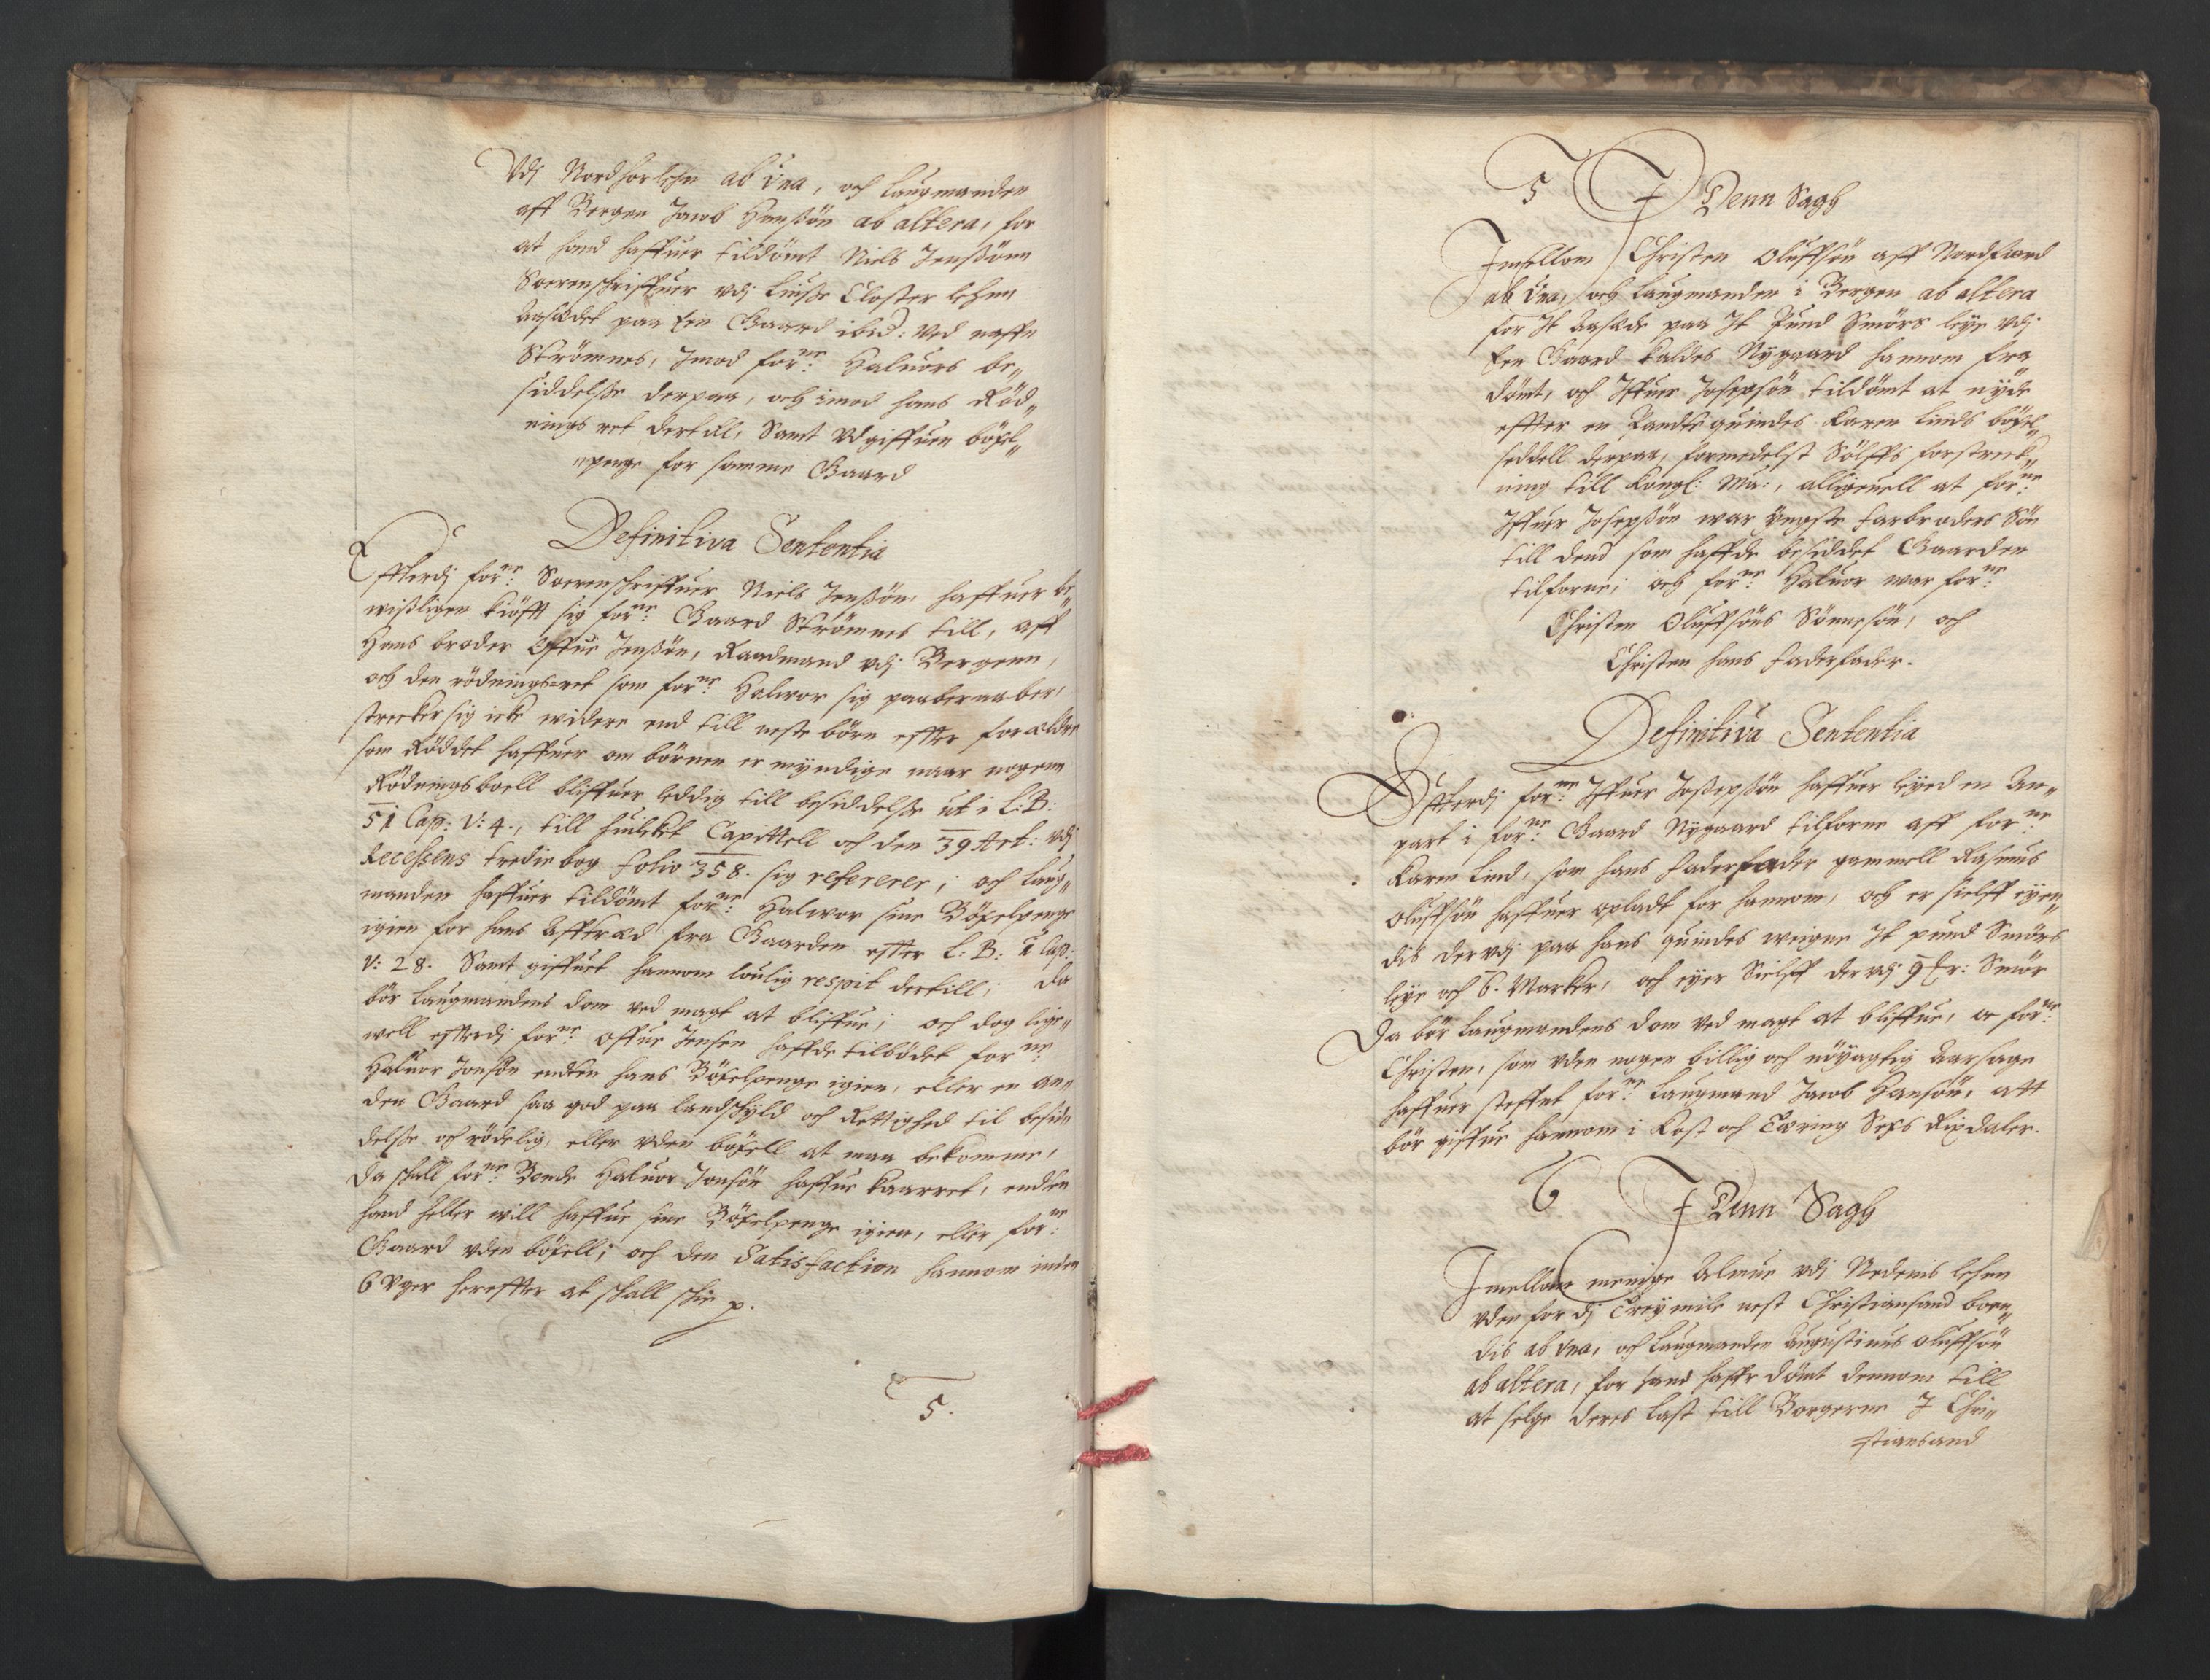 Vdj Nordhorlehn ab Una, och Laugmanden
aff Bergen Jacob Hanßön ab altera, for
at hand haffuer tildömt Niels Jenßönn
Sorenschriffuer vdj Liuße Closter lehnn
Aasædet paa een Gaard ibid: ved naffn
Strömnes, Imod forne: Haluors be„
siddelße derpaa, och imod hans Rød„
nings ret dertill, Samt Udgiffuen böxel„
„penge for samme Gaard
Definitiva Sententia
Effterdj forne: Sorenschriffuer Niels Jenßön haffuer be„
wißligen kiöfft sig forne: Gaard Strömnes till, aff
Hans broder Offue Jenßön, Raadmand vdj Bergenn,
och den rödnings-ret som forne: Halwor sig paaberaaber,
strecker sig icke widere end till neste börn effter forældre
som Röddet haffuer om börnen er myndige naar nogenn
Rödningsboell bliffuer leddig till besiddelße ut i L: B:
51 Cap: V: 4., till huilcket Capittell och den 39 Art: vdj
Recessens tredie bog folio 358. sig referer; och Laug„
manden haffuer tildömt forne: Halwor sine Böxelpenge
igien for hans Afftræd fra Gaarden effter L: B: 1 Cap:
V: 28. Samt giffuet hannom loulig respit dertill; da
bör Laugmandens dom ved magt at bliffue; och dog lige„
well effterdj forne: Offue Jensen haffde tilbödet forne
Haluor Jonsön enten hans Böxelpenge igien, eller en an„
den Gaard saa god paa landschyld och Rettighed til besid„
delße och rödelig, eller vden böxell at maa bekomme,
da schall forne: Bonde Haluor Jonsön haffue kaarret, enten
hand heller will haffue sine Böxelpenge igien, eller forne:
Gaard vden böxell; och den Satisfaction hannom inden
6 Uger hereffter at schall schie p.
5.
5 J Denn Sagh
Imellom Christen Oluffsön aff Nordfiord
ab Una, och Laugmanden i Bergen ab altera
for It Aasæde paa It Pund Smörs leye vdj
Een Gaard kaldes Nygaard hannom fra
dömt, och Iffuer Josepsön tildömt at nyde
effter en Danquindes Karen Linds böxel„
seddell derpaa, formedelst Sölffs forstreck„
ning till Kongl: Ma:, alligeuell at forne:
Iffuer Josepßön war yngste farbroders Sön
till dend som haffde besiddet Gaarden
tilforne; och forne: Haluor war forne:
Christen Oluffsöns Sönnesön, och
Christen hans faderfader.
Definitiva Sententia
Effterdj forne: Iffuer Josepßön haffuer leyed en An„
part i forne: Gaard Nygaard tilforne aff forne:
Karen Lind, som hans faderfader gammell Rasmus
Oluffsön haffuer opladt for hannom, och er sielff eyen„
dis dervdj paa hans quindes weigne It pund Smörs
leye och 6. Marker, och eyer Sielff dervdj 9 Er: Smör
Da bör Laugmandens dom ved magt at bliffue, oc forne:
Christen, som vden nogen billig och nöyagtig Aarsage
haffuer steffnet forne: Laugmand Jacob Hansön, att
bör giffue hannom i Kost och Tæring Sexs Rixdaler.
6 J Denn Sagh
Imellom menige Almue vdj Nedenis lehen
vden for dj Trey mile nest Christiansand boen„
dis ab Una, och Laugmanden Augustinus Oluffsön
ab altera, for hand haffr dömt dennom till
at selge deres last till Borgerne J Chri„
stiansand